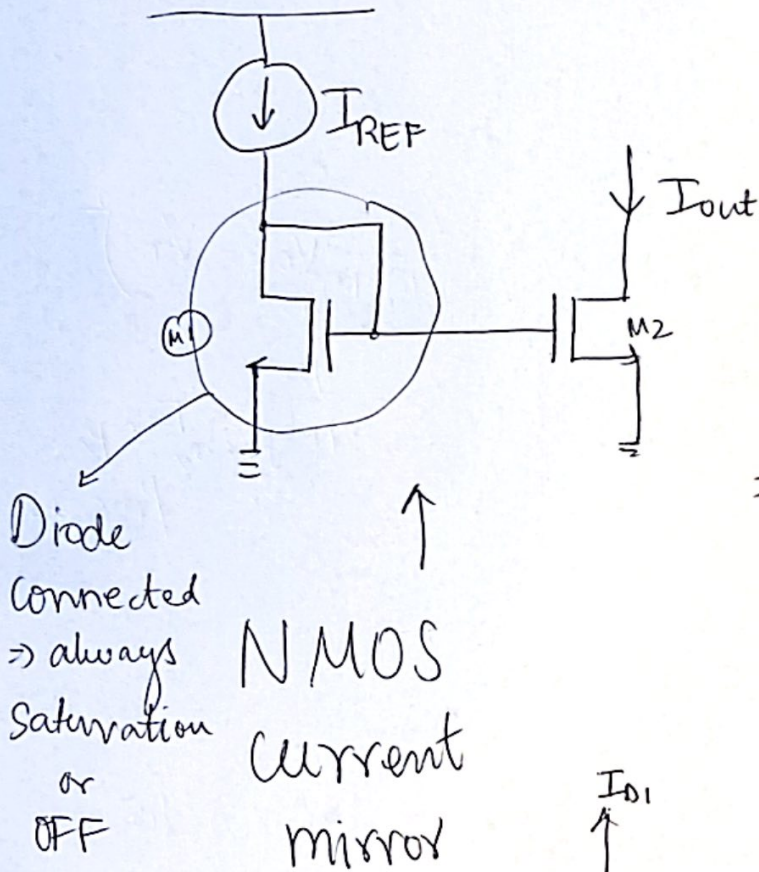 I_REF
Iout
M1
M2
Diode
connected
=> always
Saturation
or
OFF
NMOS
current
mirror
I_D1